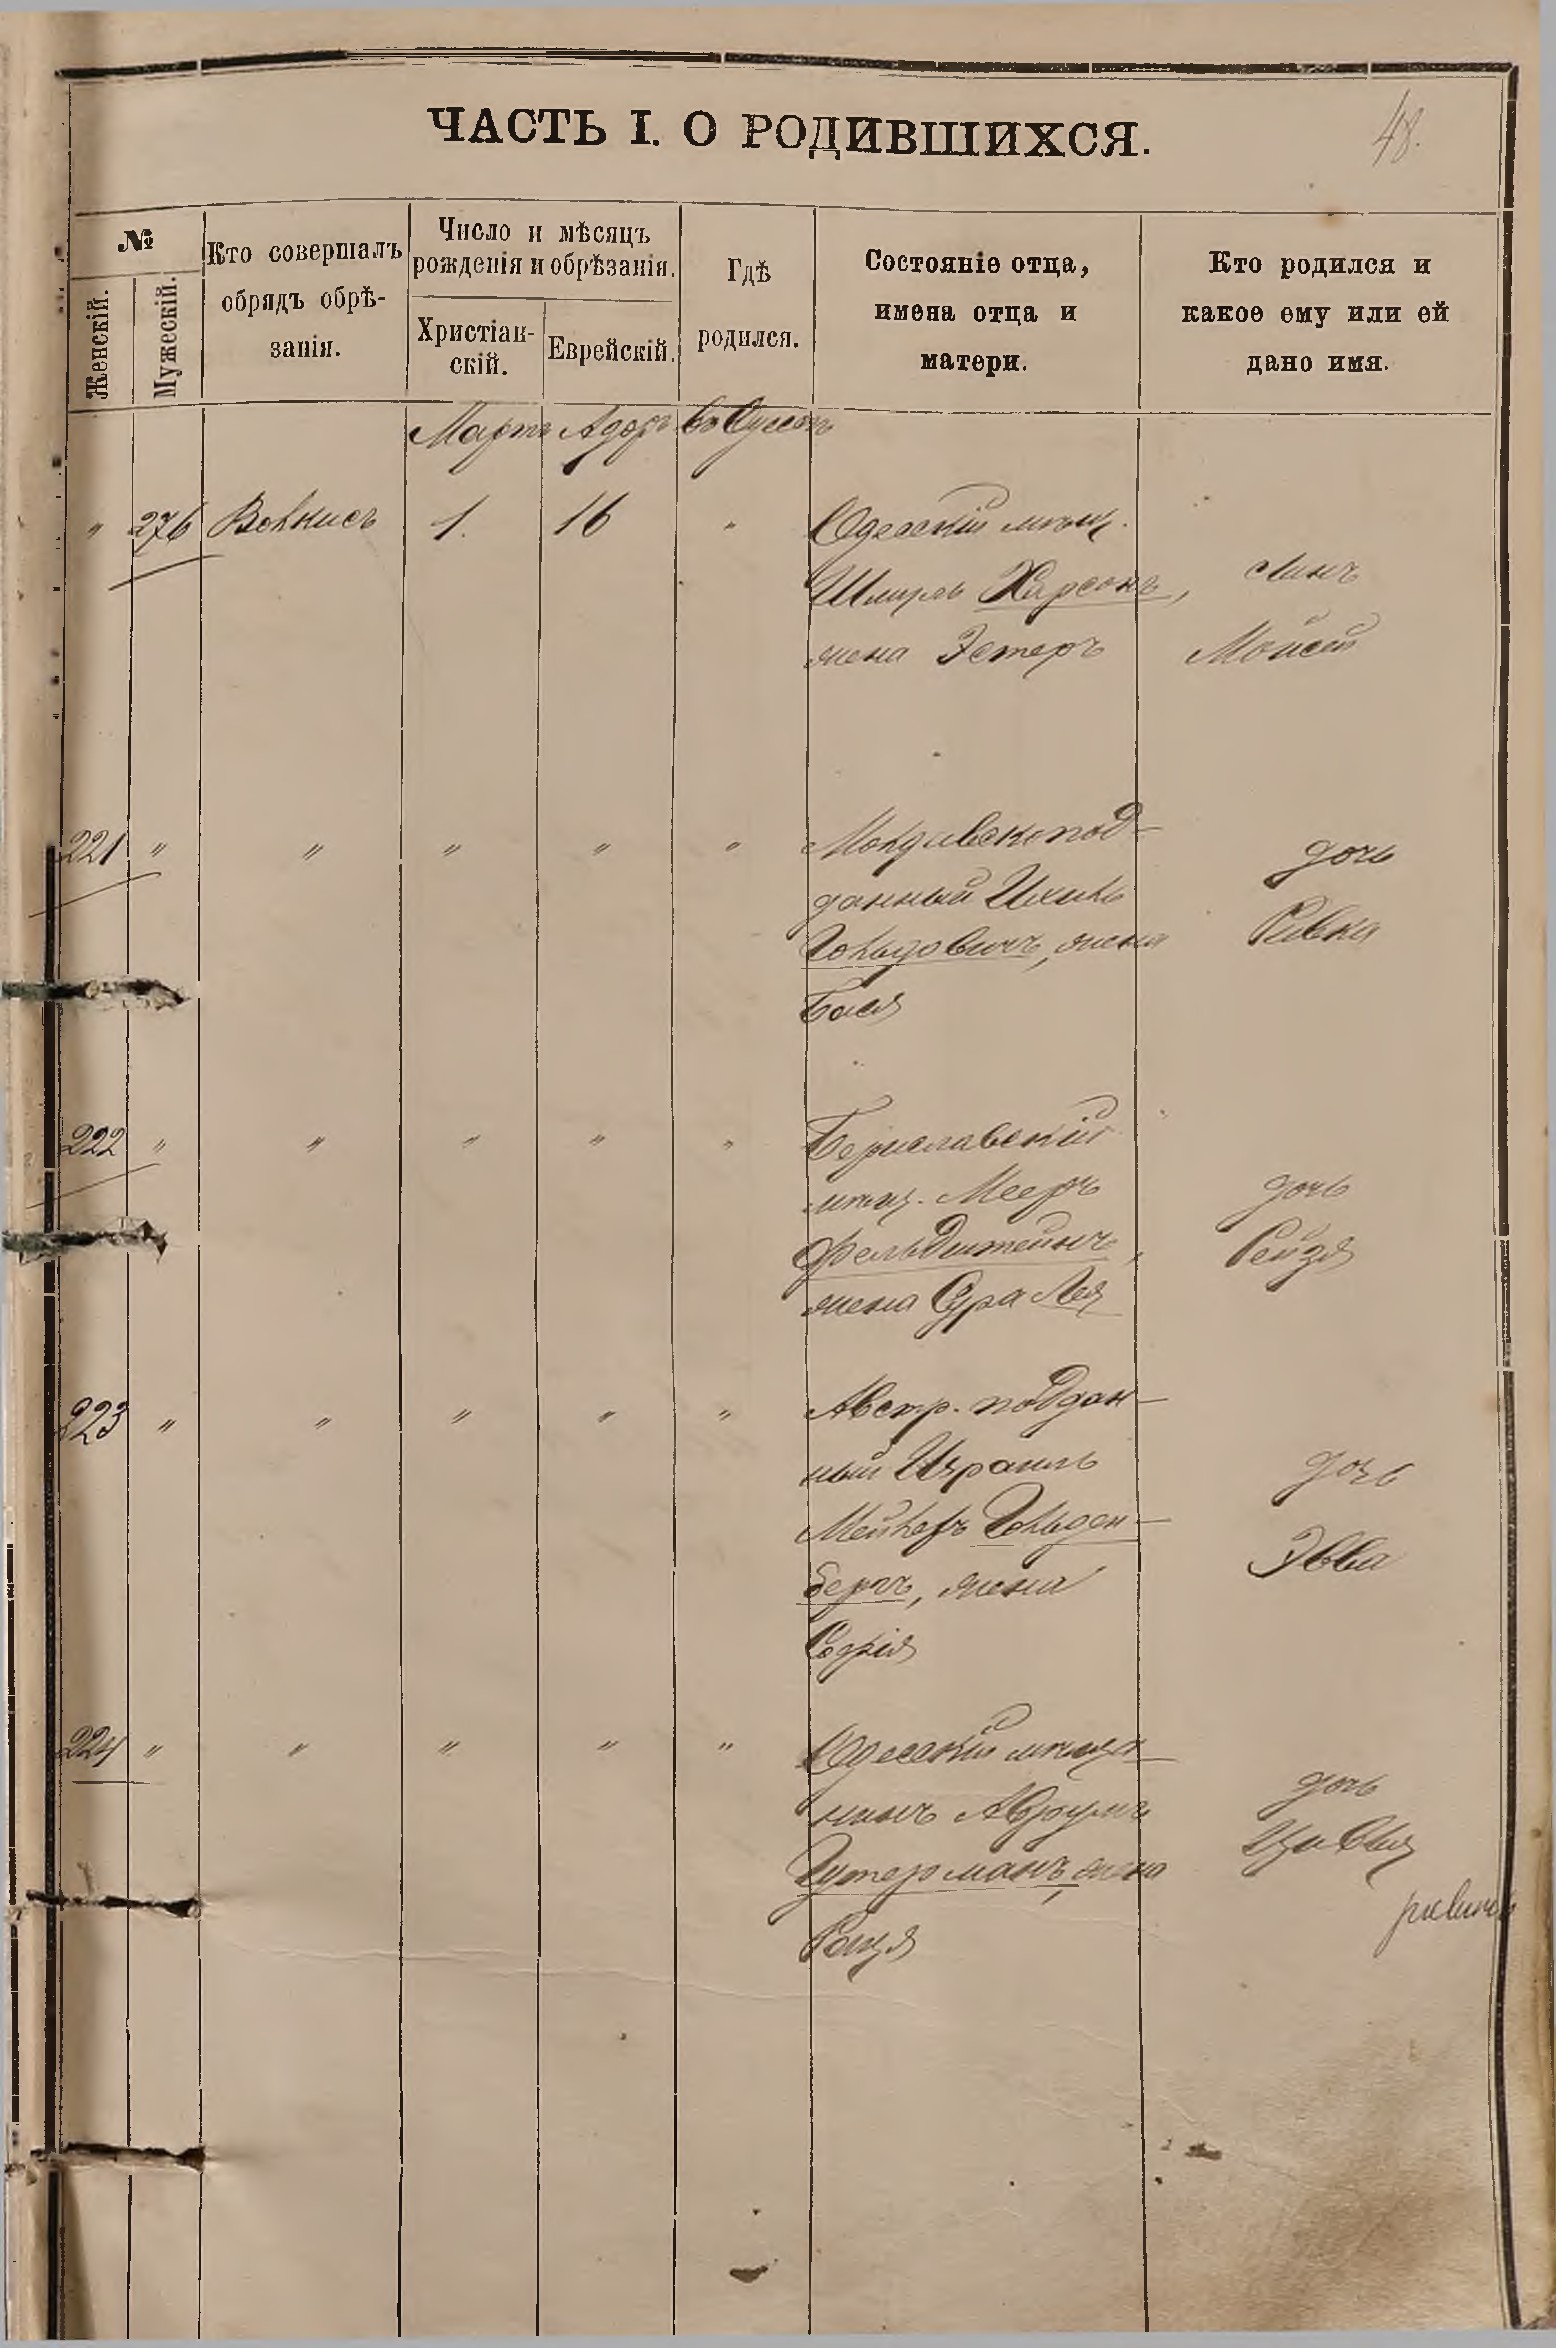 ЧАСТЬ I. О РОДИВШИХСЯ.
48.
№
Женскій.
Мужескій.
Кто совершалъ
обрядъ обрѣ-
занія.
Число и мѣсяцъ
рожденія и обрѣзанія.
Христіан-
скій.
Еврейскій.
Гдѣ
родился.
Состояніе отца,
имена отца и
матери.
Кто родился и
какое ему или ей
дано имя.
Мартъ Адоръ въ Одессѣ
" 276 Волкисъ 1. 16 " Одесскій мѣщ.
Шмиль Харсонъ,
жена Эстеръ
сынъ
Мойсей
221 " " " " " Молдавскоподд-
данный Ихиль
Гольдовичъ, жена
Бася
дочь
Ривка
222 " " " " " Бериславскій
мѣщ. Мееръ
Фельдштейнъ,
жена Сура Лея
дочь
Рейзя
223 " " " " " Австр. поддан-
ный Израиль
Мейлеръ Гольден-
бергъ, жена
Софія
дочь
Эвва
224 " " " " " Одесскій мѣща-
нинъ Аврумъ
Гутерманъ, жена
Роися
дочь
Цивья